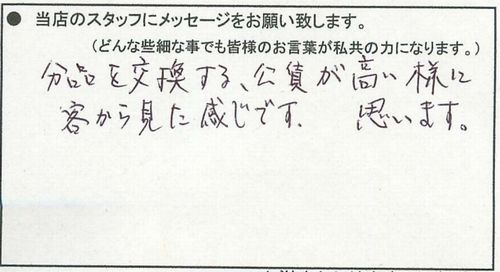 ● 当店のスタッフにメッセージをお願い致します。
(どんな些細な事でも皆様のお言葉が私共の力になります。)
分品を交換する、公賃が高い様に
客から見た感じです. 思います。